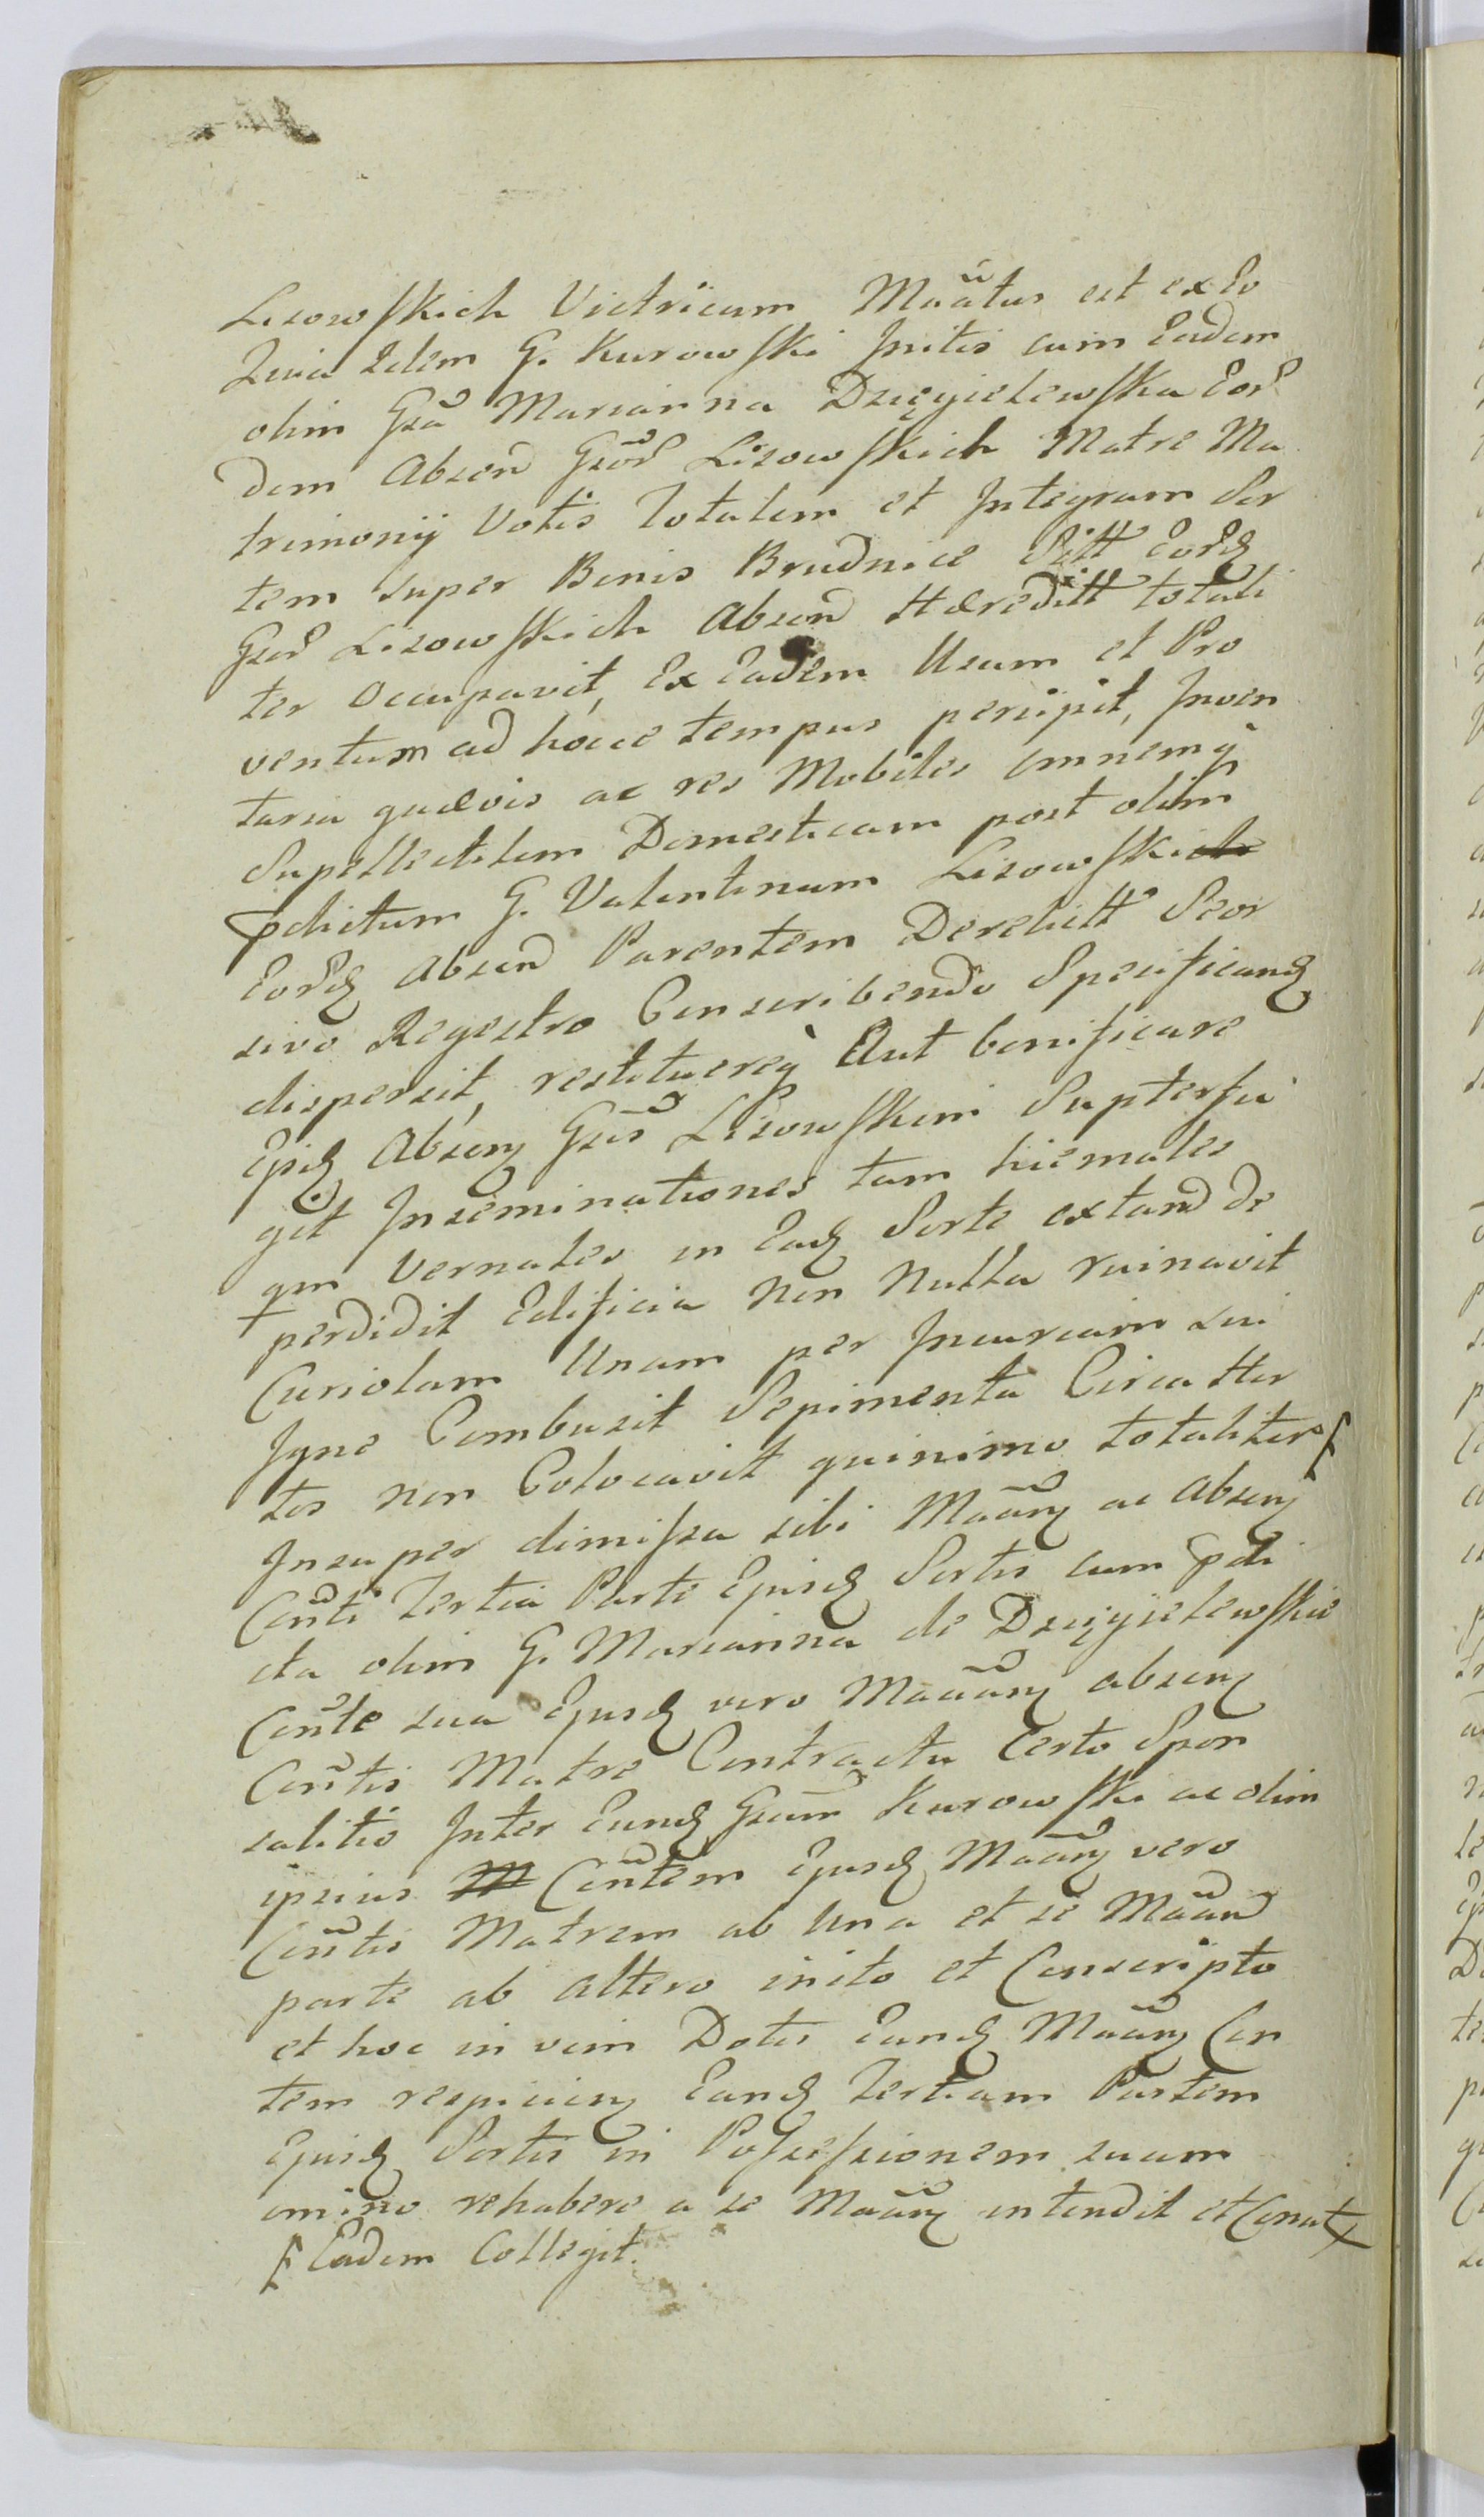 Lisowskich Victricum Maatus est ex Eo
Quia idem G. Kurowski Initis cum Eadem
olim Gsa Marianna Dzięgielewska Eor
dem Absen Gsor Lisowskich Matre Ma
trimonij Votis Totalem et Integram Sor
tem super Bonis Brudnice Sitt Eord
Gsor Lisowskich Absen Hæreditt totali
ter Occupavit, Ex Eadem Usum et Pro
ventum ad hocce tempus percipit, Inven
taria quævis ac res Mobiles omnemq
Supellectilem Domesticam post olim
pdictum G. Valentinum Lisowskich
Eord Absen Parentem Derelictt Seor
sivo Regestro Conscribendo Specificand
dispersit, restituereq Aut bonificare
Epid Absen Gsis Lisowskim Supterfu
git Inseminationes tam hiemales
qm Vernales in Ead Sorte extand de
perdidit Edificia Non Nulla ruinavit
Curiolam Unam per Incuriam sui
Igne Combusit Sepimenta Circa Hor
tos non Colocavit quinimo totaliter
Insuper dimissa sibi Maan ac Absen
Conti Tertia Parte Ejusd Sortis cum pdi
cta olim G. Marianna de Dzięgielewskie
Conte sua Ejusd vero Maaan absen
Contis Matre Contractu Certo Spon
salitio Inter Eund Gsum Kurowski ac olim
ipsius M Contem Ejusd Maan vero
Contis Matrem ab Una et se Maan
parte ab altero inito et Conscripto
et hoc in vim Dotis Eand Maan Con
tem respicien Eand Tertiam Partem
Ejusd Sortis in Possessionem suam
omino rehabere a se Maan intendit et Conat
Eadem Collegit.